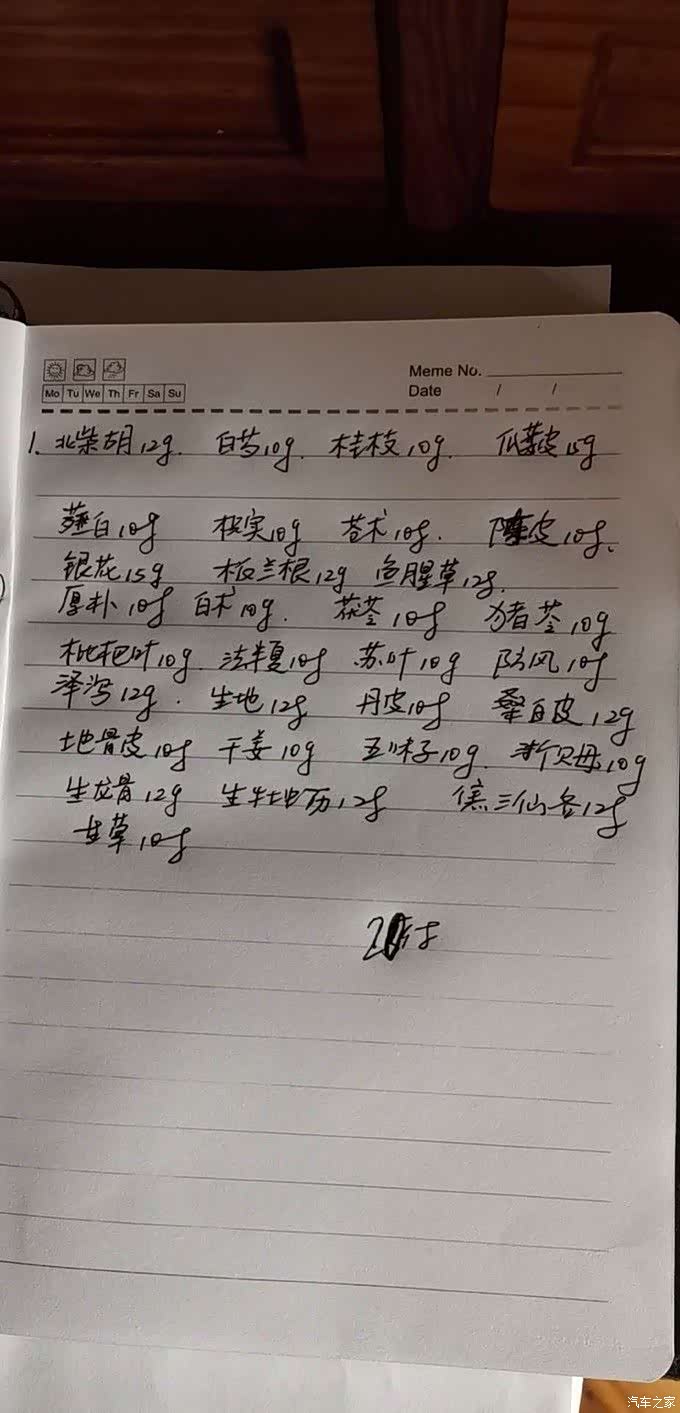 Meme No.
Mo Tu We Th Fr Sa Su
Date / /
1. 北柴胡12g. 白芍10g. 桂枝10g. 瓜蒌皮15g
薤白10g 枳实10g 苍术10g. 陈皮10g、
银花15g 板兰根12g 鱼腥草12g.
厚朴10g 白术10g. 茯苓10g 猪苓10g
枇杷叶10g. 法半夏10g 苏叶10g 防风10g
泽泻12g. 生地12g 丹皮10g 桑白皮12g
地骨皮10g 干姜10g 五味子10g. 浙贝母10g
生龙骨12g 生牡历12g 焦三仙各12g
甘草10g
付
汽车之家